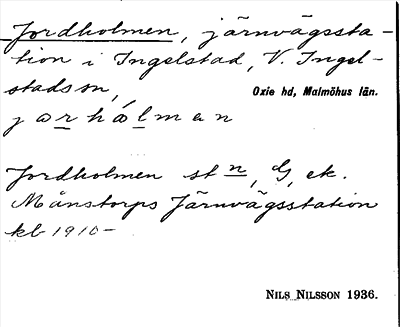 Jordholmen, järnvägssta-
tion i Ingelstad, V. Ingel-
stads sn,
Oxie hd, Malmöhus län.
Jordholmen st n, G, ek.
Månstorps Järnvägsstation
kb 1910-
NILS NILSSON 1936.